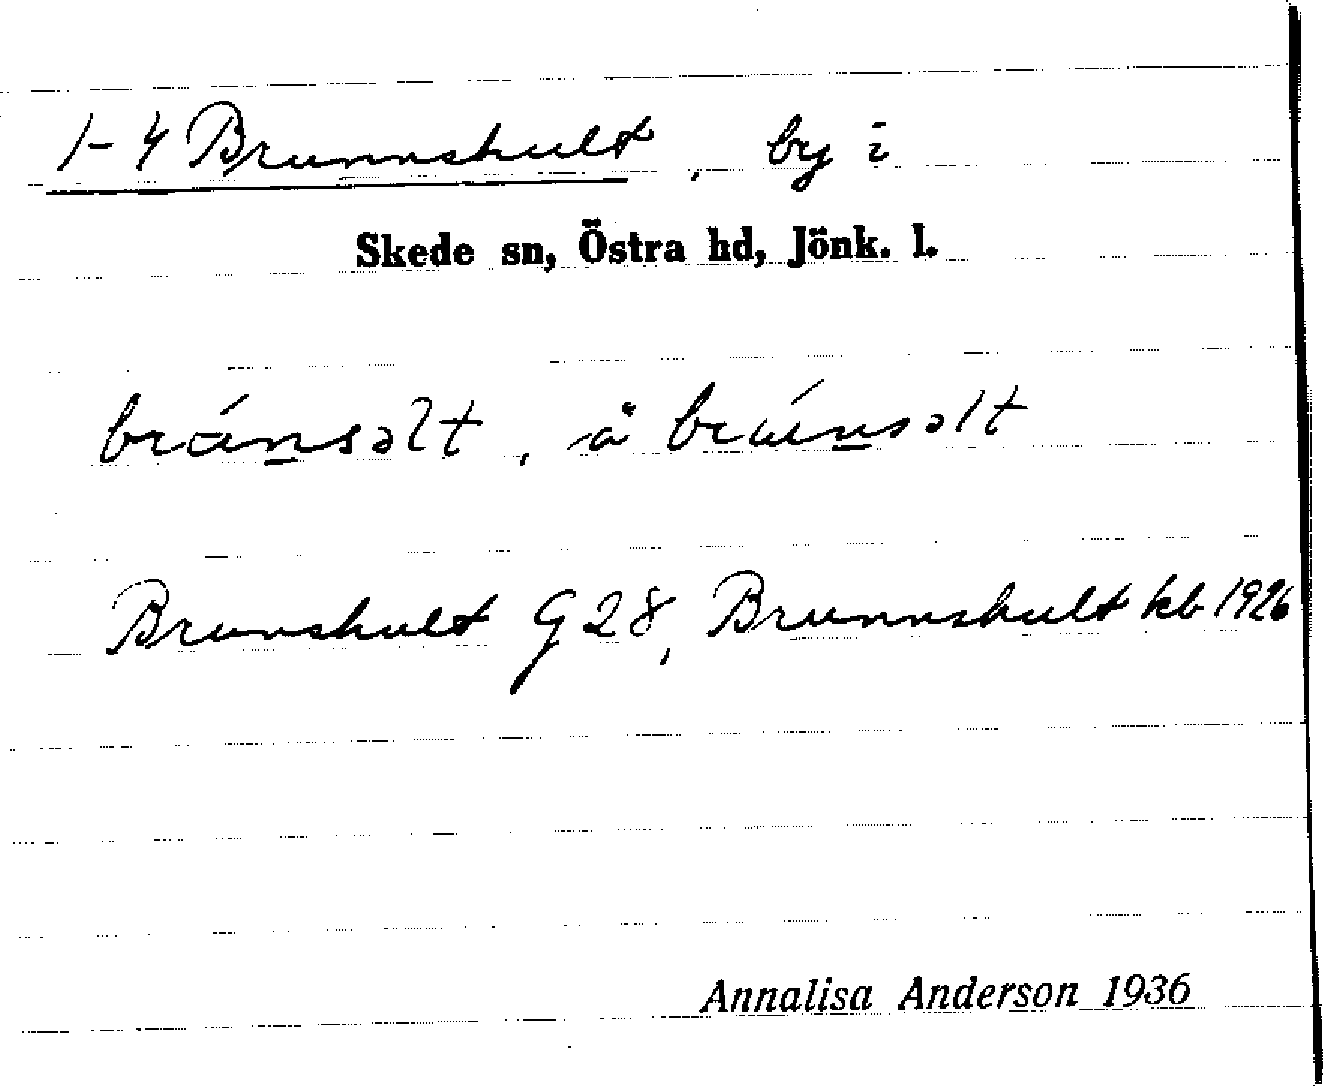 1-4 Brunnshult, by i
Skede sn, Östra hd, Jönk. l.
bránsəlt, å bránsəlt
Brunshult G 28, Brunnshult kb 1926
Annalisa Anderson 1936